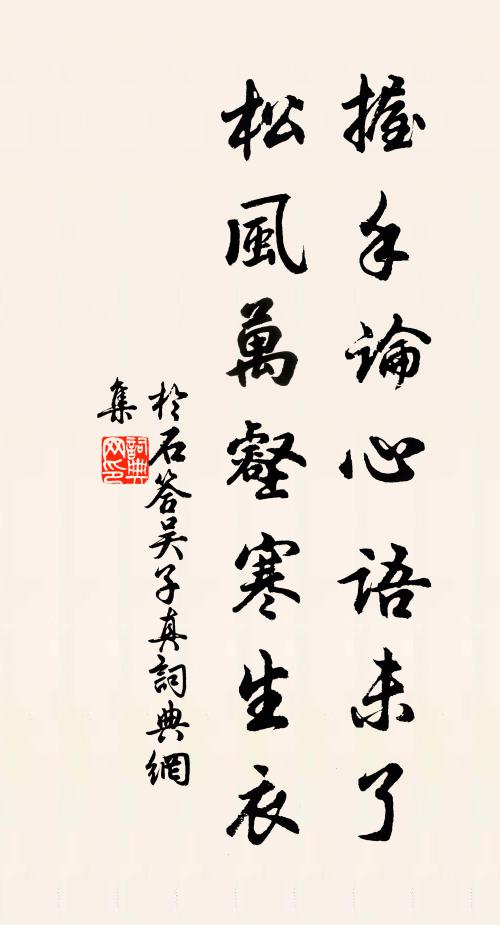 握手論心語未了
松風萬壑寒生衣
於石答吳子真詞典網
集
詞典
网印